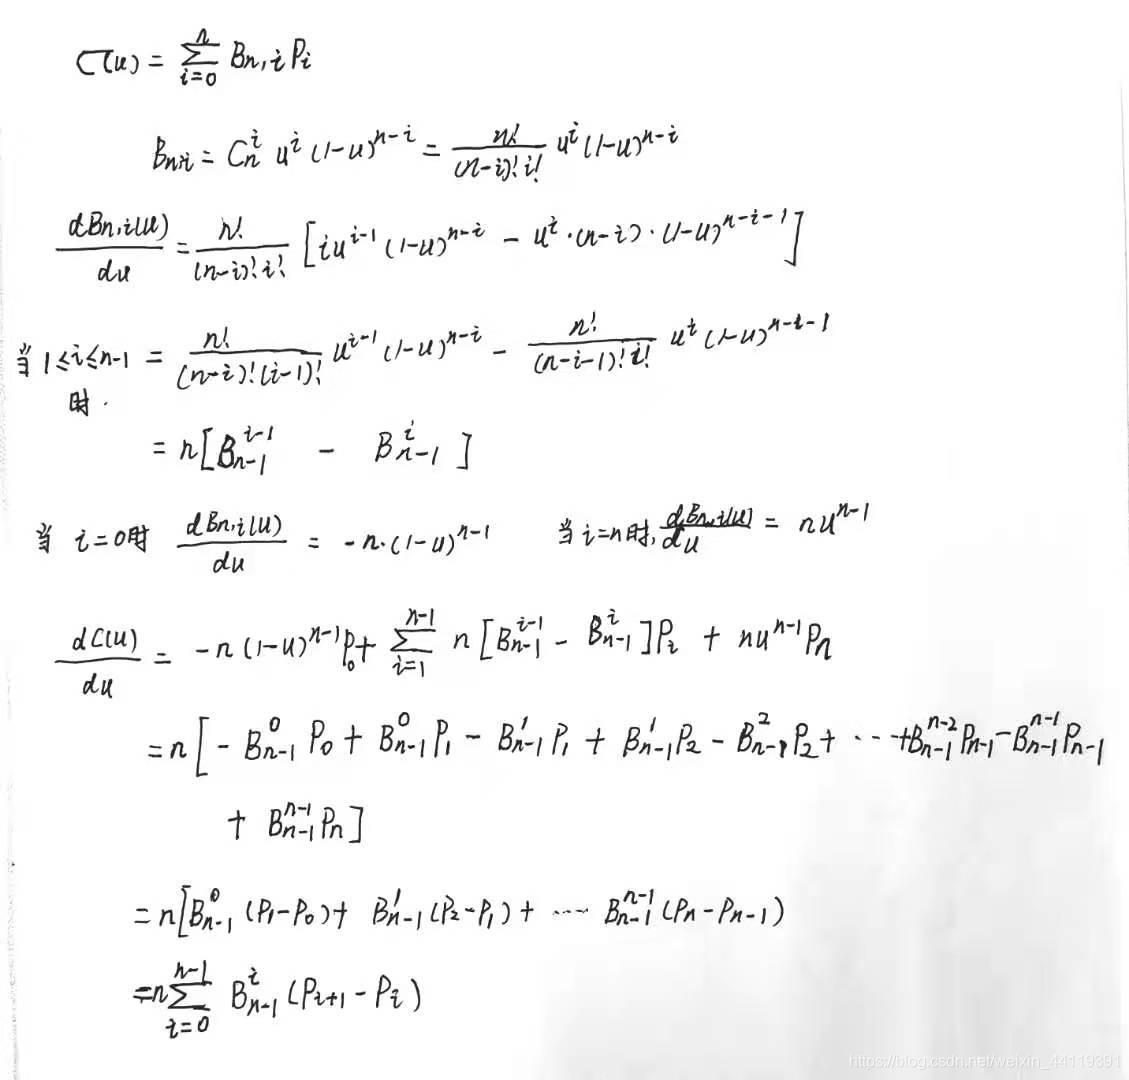 C(u) = \sum_{i=0}^{n} B_{n,i} P_i
B_{n,i} = C_n^i u^i (1-u)^{n-i} = \frac{n!}{(n-i)! i!} u^i (1-u)^{n-i}
\frac{dB_{n,i}(u)}{du} = \frac{n!}{(n-i)! i!} [i u^{i-1} (1-u)^{n-i} - u^i \cdot (n-i) \cdot (1-u)^{n-i-1}]
当 1 \le i \le n-1 时. = \frac{n!}{(n-i)! (i-1)!} u^{i-1} (1-u)^{n-i} - \frac{n!}{(n-i-1)! i!} u^i (1-u)^{n-i-1}
= n [B_{n-1}^{i-1} - B_{n-1}^{i}]
当 i=0时 \frac{dB_{n,i}(u)}{du} = -n \cdot (1-u)^{n-1} 当 i=n 时, \frac{dB_{n,i}(u)}{du} = n u^{n-1}
\frac{dC(u)}{du} = -n (1-u)^{n-1} P_0 + \sum_{i=1}^{n-1} n [B_{n-1}^{i-1} - B_{n-1}^{i}] P_i + n u^{n-1} P_n
= n [ - B_{n-1}^0 P_0 + B_{n-1}^0 P_1 - B_{n-1}^1 P_1 + B_{n-1}^1 P_2 - B_{n-1}^2 P_2 + \cdots + B_{n-1}^{n-2} P_{n-1} - B_{n-1}^{n-1} P_{n-1}
+ B_{n-1}^{n-1} P_n ]
= n [B_{n-1}^0 (P_1 - P_0) + B_{n-1}^1 (P_2 - P_1) + \cdots B_{n-1}^{n-1} (P_n - P_{n-1})
= n \sum_{i=0}^{n-1} B_{n-1}^i (P_{i+1} - P_i)
https://blog.csdn.net/weixin_44119391